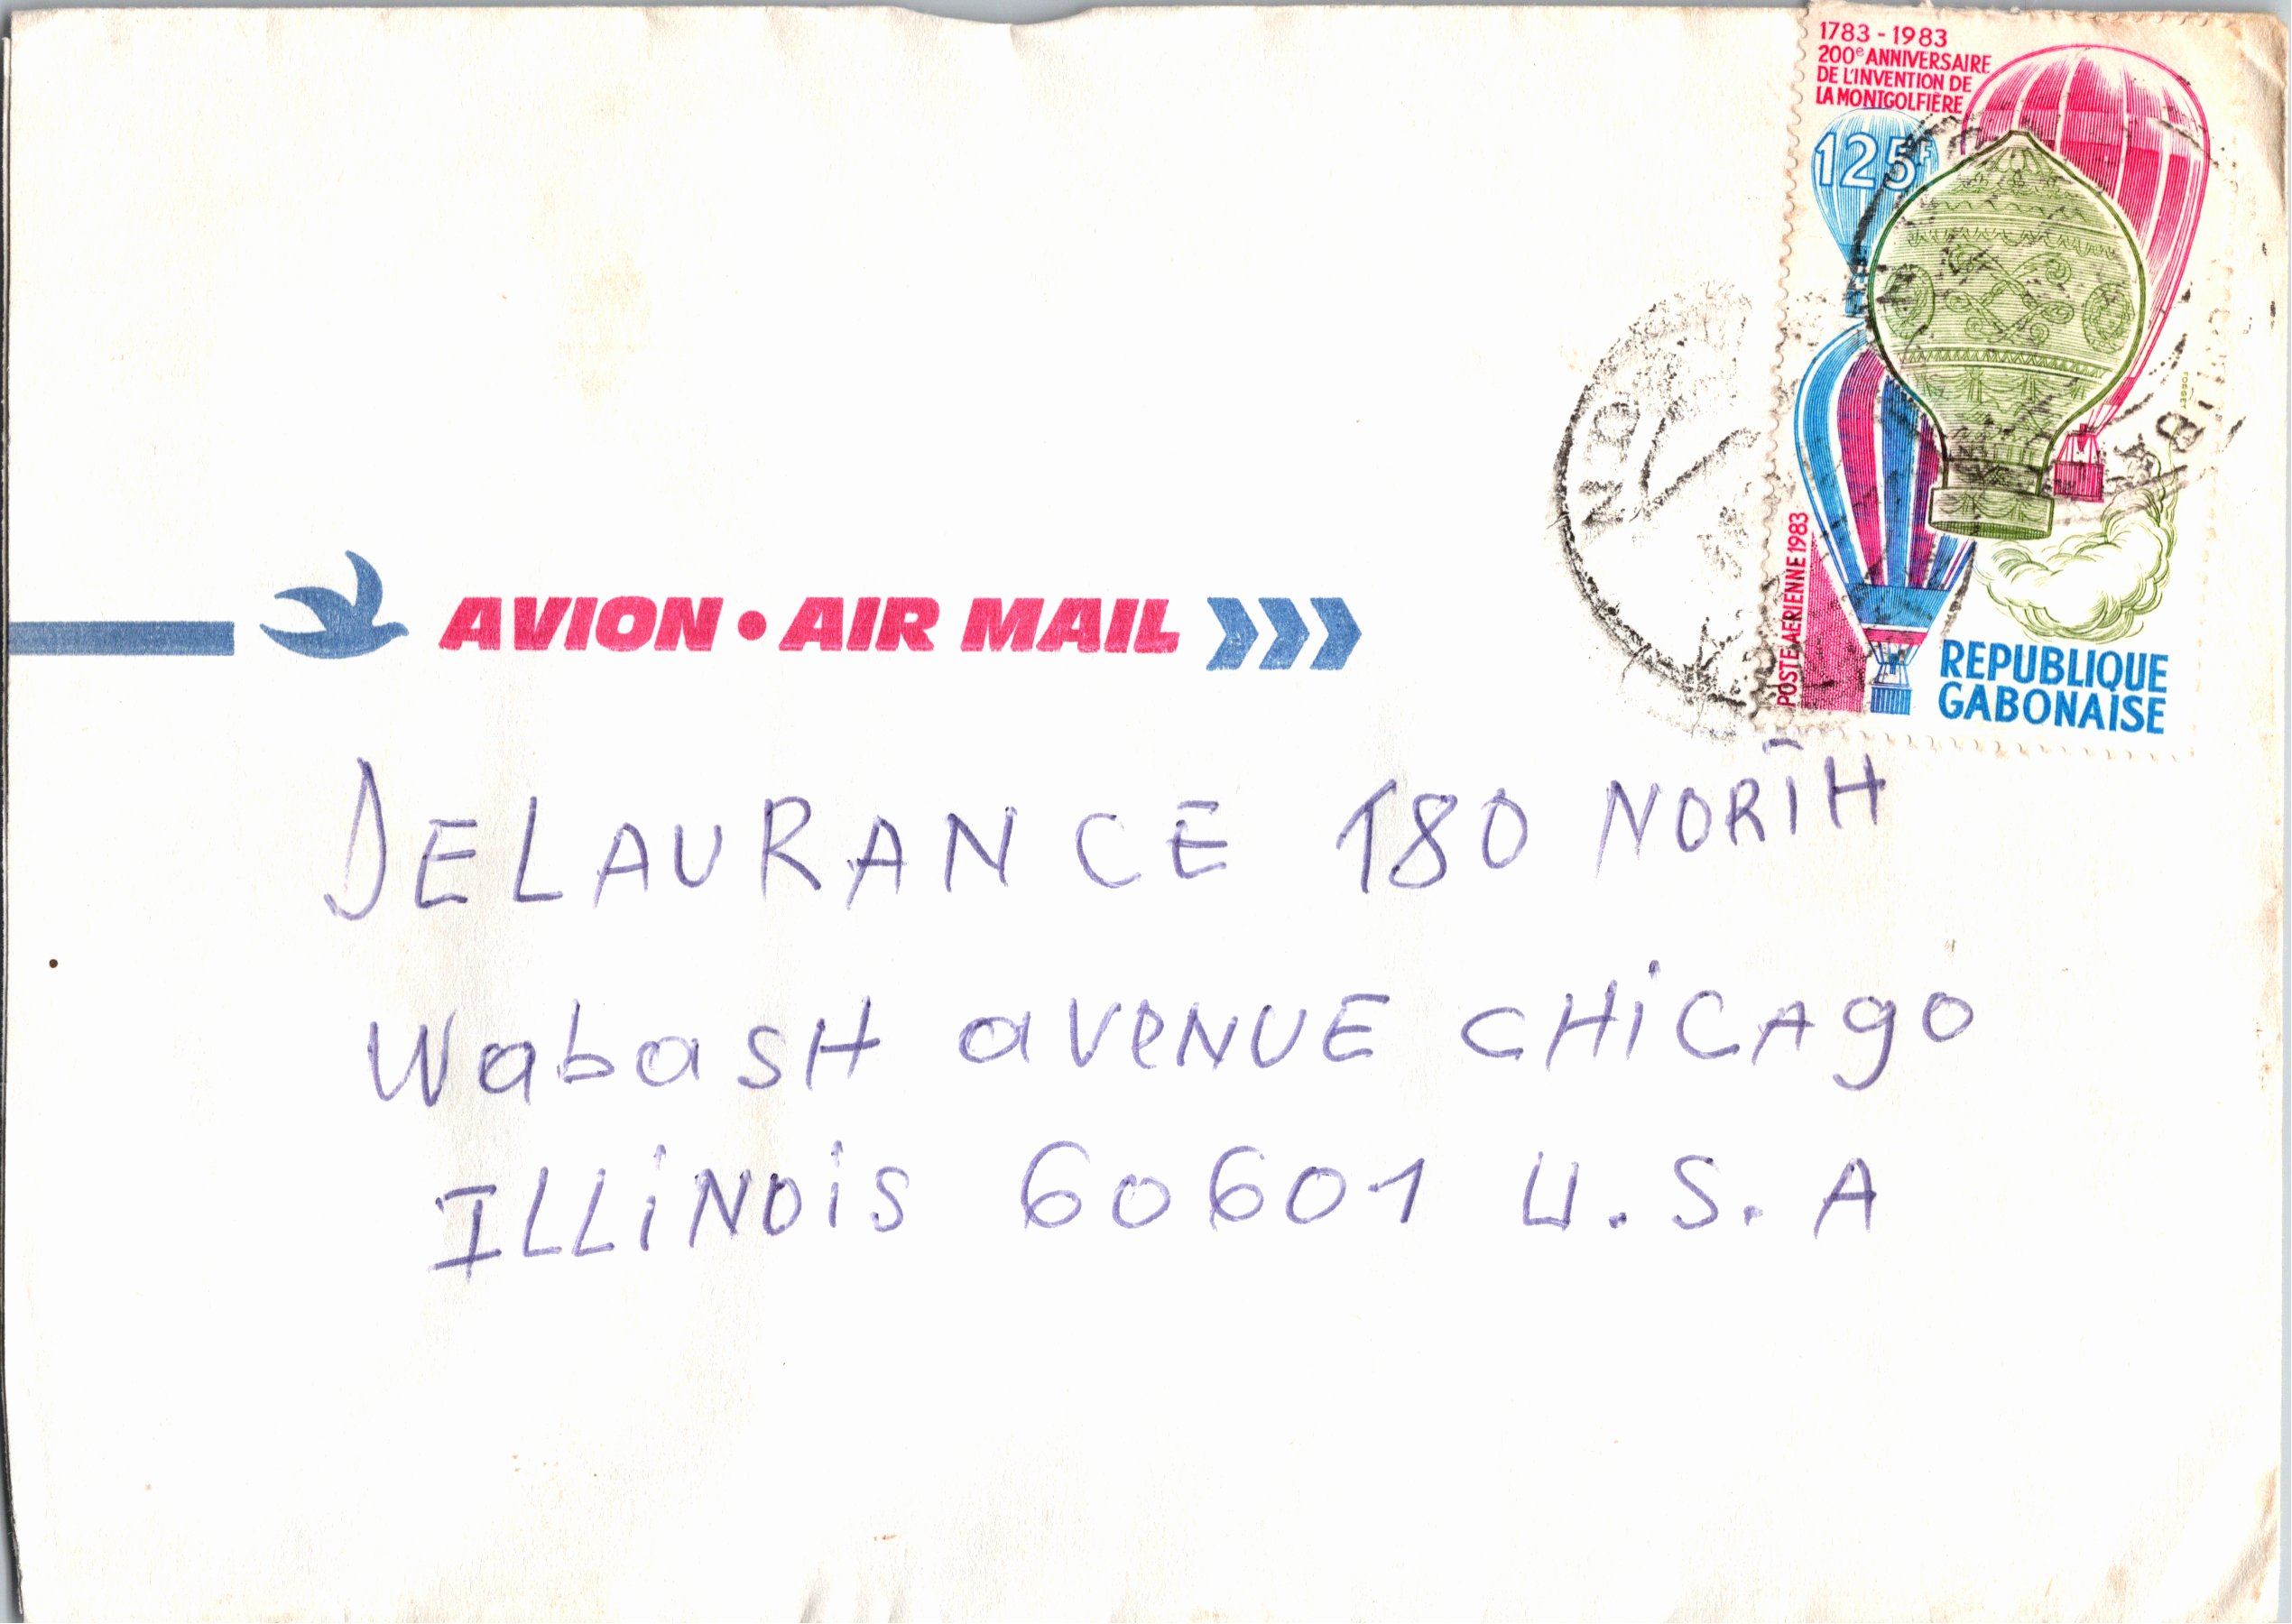 1783 - 1983
200e ANNIVERSAIRE
DE L'INVENTION DE
LA MONTGOLFIÈRE
125F
POSTE AERIENNE 1983
REPUBLIQUE
GABONAISE
AVION • AIR MAIL
DELAURANCE 180 NORTH
WabasH avenUE CHiCAgo
ILLiNOiS 60601 U.S.A